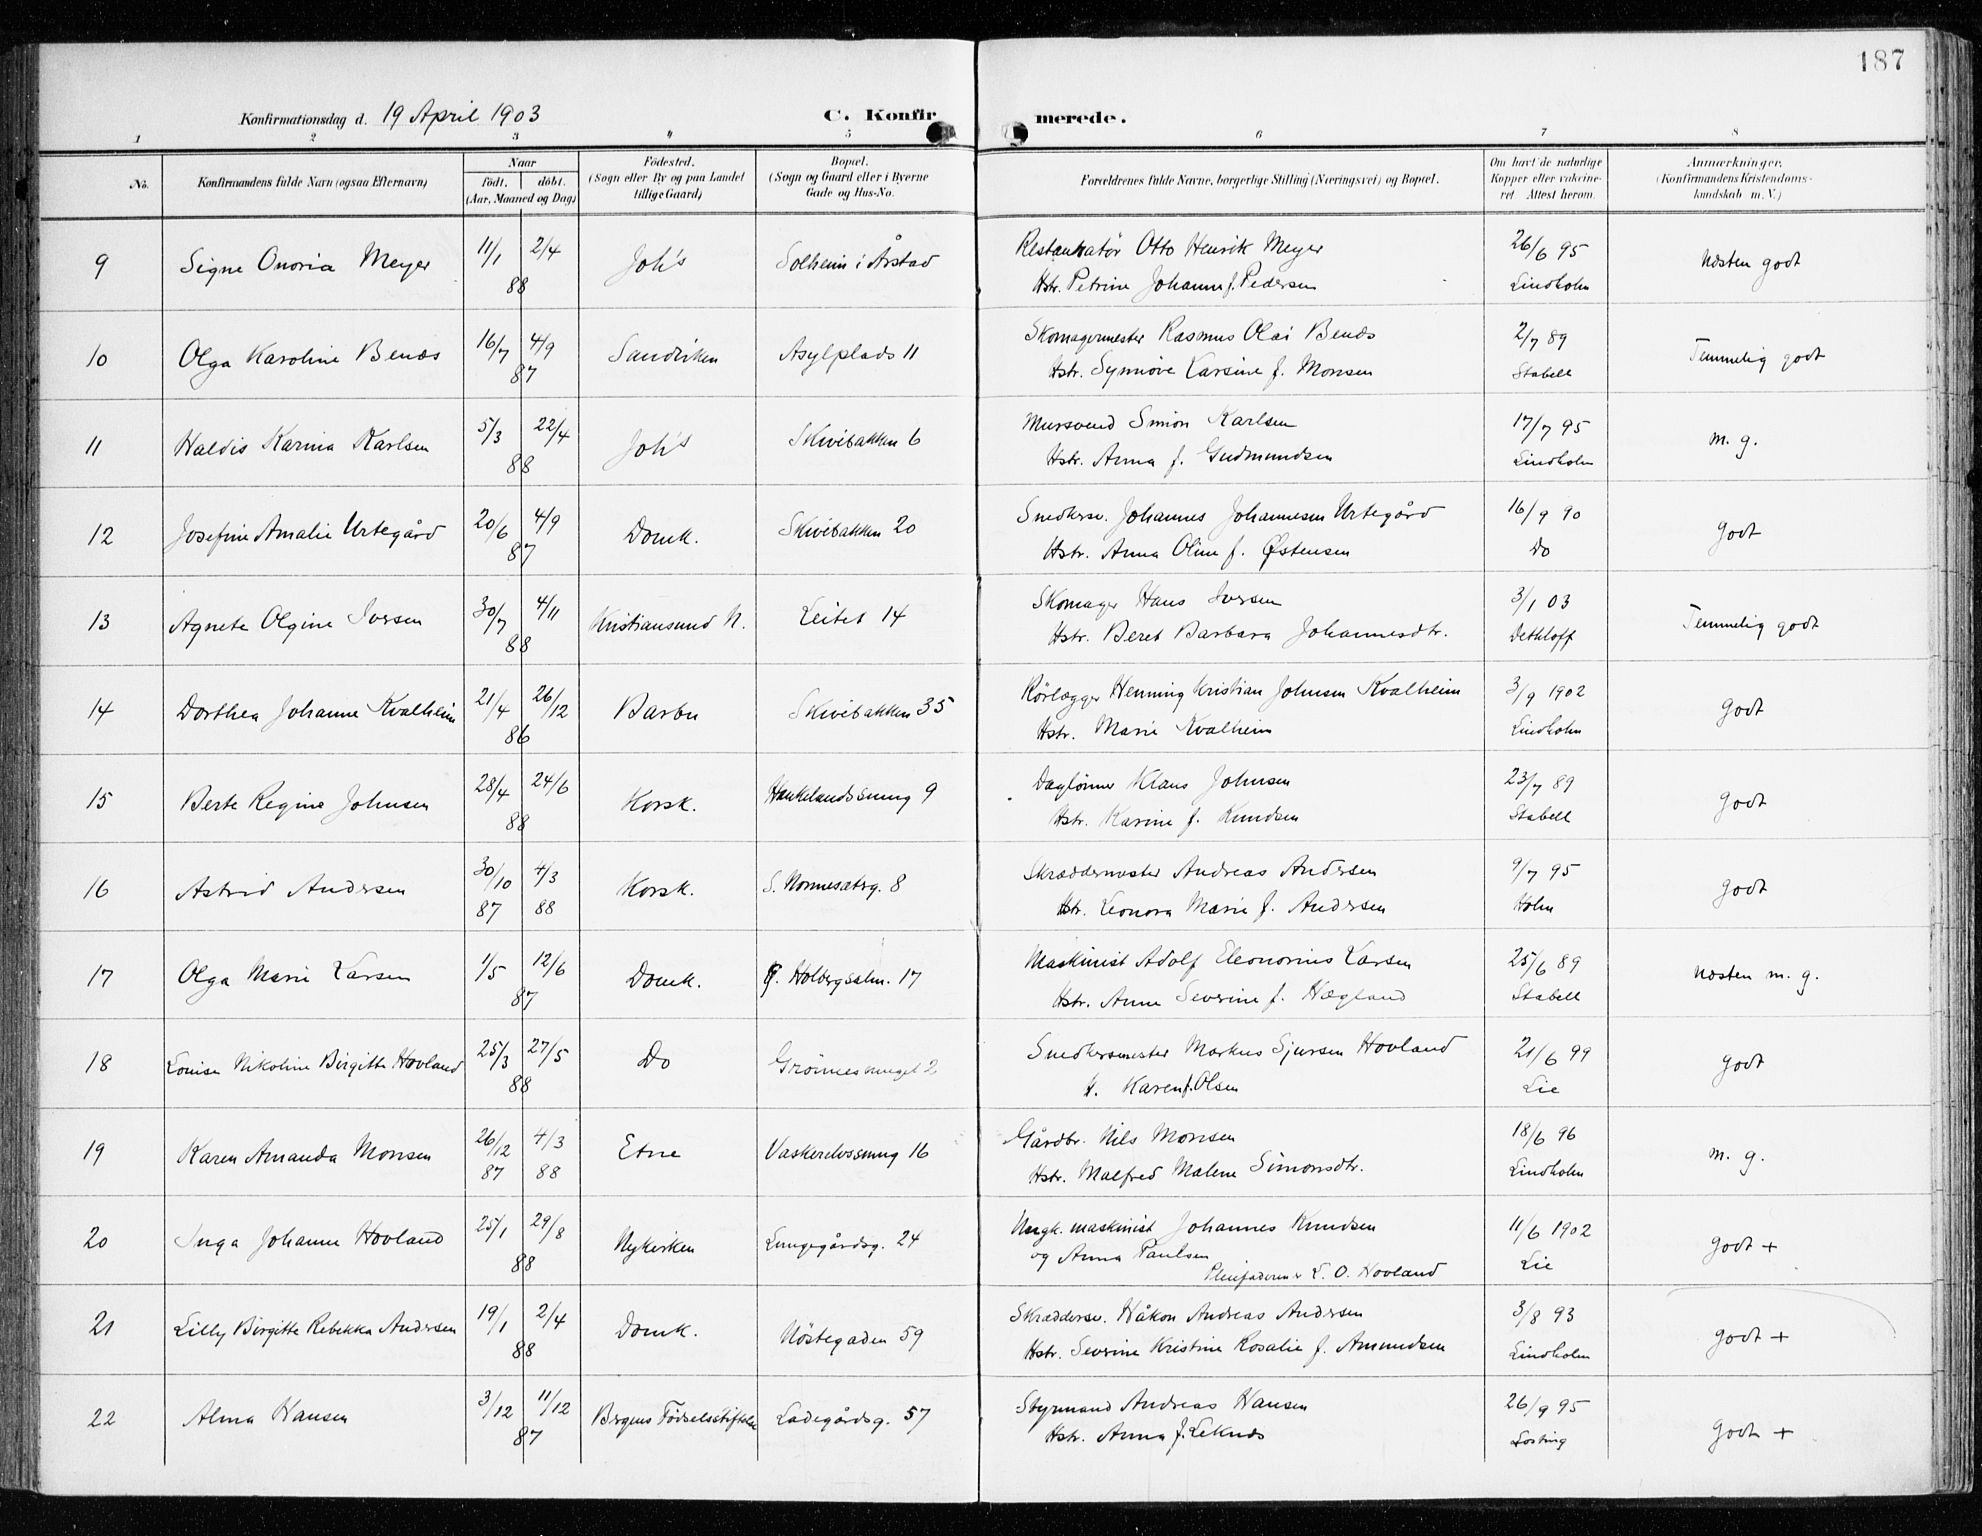 187
Konfirmationsdag d. 19 April 1903 C. Konfir merede.
1 2 3 " 5 6 7 8
No. Konfirmandens fulde Navn (ogsaa Efternavn) Naar födt. döbt. (Aar, Maaned og Dag) Födested. (Sogn eller By og paa Landet tillige Gaard) Bopæl. (Sogn og Gaard eller i Byerne Gade og Hus-No. Forældrenes fulde Navne, borgerlige Stilling (Næringsvei) og Bopæl. Om havt de naturlige Kopper eller vakcineret Attest herom. Anmærkninger. (Konfirmandens Kristendomskundskab m. V.)
9 Signe Onoria Meyer 11/1 2/4 88 Joh's Solheim i Årstad Restauratör Otto Henrik Meyer 26/6 95 Næsten godt
Hstr. Petrine Johanne f. Pedersen Lindholm
10 Olga Karoline Benæs 16/7 4/9 87 Sandviken Asylplads 11 Skomagermester Rasmus Olai Benæs 2/7 89 Temmelig godt
Hstr. Synnöve Karsine f. Monsen Stabell
11 Haldis Karina Karlsen 5/3 22/4 88 Joh's Skivebakken 6 Mursvend Simon Karlsen 17/7 95 m. g.
Hstr. Anna f. Gudmundsen Lindholm
12 Josefine Amalie Urtegård 20/6 4/9 87 Domk. Skivebakken 20 Snedkersv. Johannes Johannesen Urtegård 16/9 90 godt
Hstr. Anna Oline f. Østensen Do
13 Agnete Olgine Iversen 30/7 4/11 88 Kristiansund N. Leitet 14 Skomager Hans Iversen 3/1 03 Temmelig godt
Hstr. Beret Barbara Johannesdtr. Dethloff
14 Dorthea Johanne Kvalheim 21/4 26/12 86 Barbu Skivebakken 35 Rörlægger Henning Kristian Johnsen Kvalheim 3/9 1902 godt
Hstr. Marie Kvalheim Lindholm
15 Berte Regine Johnsen 28/4 24/6 88 Korsk. Haukelandssmug 9 Daglönner Klaus Johnsen 23/7 89 godt
Hstr. Karine f. Knudsen Stabell
16 Astrid Andersen 30/10 87 4/3 88 Korsk. S. Nonnesæterg. 8 Skræddermester Andreas Andersen 9/7 95 godt
Hstr. Leonora Marie f. Andersen Holm
17 Olga Marie Larsen 1/5 12/6 87 Domk. Holbergsalm. 17 Maskinist Adolf Eleonorius Larsen 25/6 89 Næsten m. g.
Hstr. Anne Severine f. Hægland Stabell
18 Louise Nikoline Birgitte Hovland 25/3 27/5 88 Do Grönnesmuget 2 Snedkermester Markus Sjursen Hovland 21/6 99 godt
H. Karen f. Olsen Lie
19 Karen Amanda Monsen 26/12 87 4/3 88 Etne Vaskerelvssmug 16 Gårdbr. Nils Monsen 18/6 96 m. g.
Hstr. Malfred Malene Simonsdtr. Lindholm
20 Inga Johanne Hovland 25/1 29/8 88 Nykirken Lungegårdsg. 24 Ungk. maskinist Johannes Knudsen 11/6 1902 godt +
og Anna Paulsen Lie
Pleiefaderen L. O. Hovland
21 Lilly Birgitte Rebekka Andersen 19/1 2/4 88 Domk. Nöstegaden 59 Skræddersv. Håkon Andreas Andersen 3/8 93 godt +
Hstr. Severine Kristine Rosalie f. Amundsen Lindholm
22 Alma Hansen 3/12 11/12 87 Bergens Födselsstiftelse Ladegårdsg. 57 Styrmand Andreas Hansen 26/9 95 godt +
Hstr. Anna f. Leknæs Losting